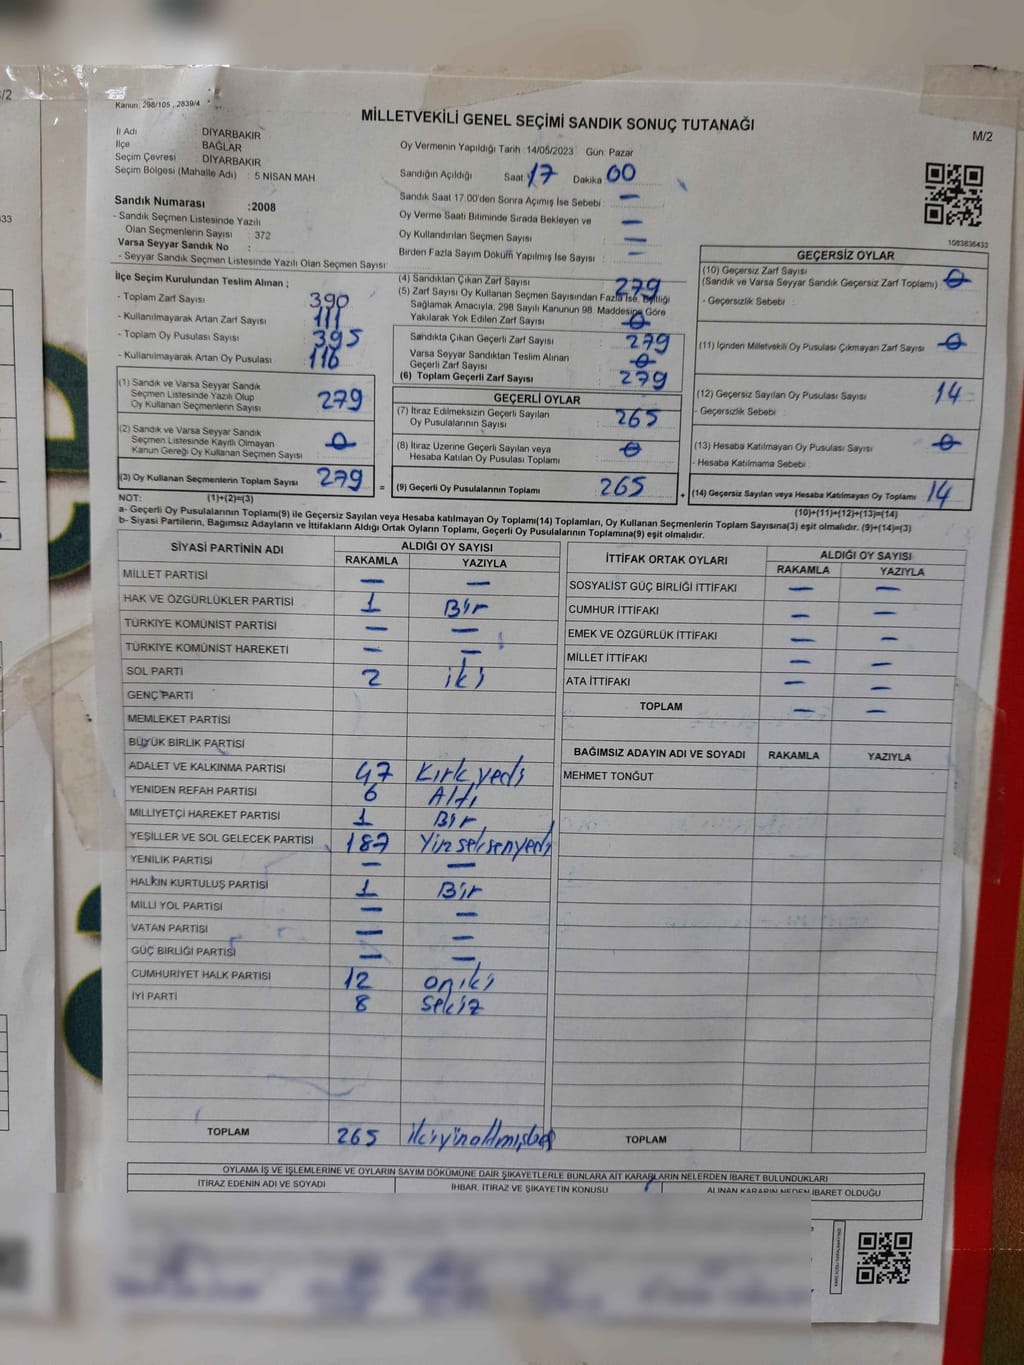 /2
Kanun, 298/105 , 2839/4
MİLLETVEKİLİ GENEL SEÇİMİ SANDIK SONUÇ TUTANAĞI
M/2
İl Adı DİYARBAKIR
İlçe BAĞLAR
Seçim Çevresi DİYARBAKIR
Seçim Bölgesi (Mahalle Adı) : 5 NİSAN MAH
Sandık Numarası :2008
- Sandık Seçmen Listesinde Yazılı
Olan Seçmenlerin Sayısı : 372
Varsa Seyyar Sandık No :
- Seyyar Sandık Seçmen Listesinde Yazılı Olan Seçmen Sayısı:
Oy Vermenin Yapıldığı Tarih 14/05/2023 Gün: Pazar
Sandığın Açıldığı Saat 17 Dakika 00
Sandık Saat 17.00'den Sonra Açılmış İse Sebebi : –
Oy Verme Saati Bitiminde Sırada Bekleyen ve –
Oy Kullandırılan Seçmen Sayısı : –
Birden Fazla Sayım Döküm Yapılmış İse Sayısı : –
1083636433
33
İlçe Seçim Kurulundan Teslim Alınan ;
- Toplam Zarf Sayısı 390
- Kullanılmayarak Artan Zarf Sayısı 111
- Toplam Oy Pusulası Sayısı 395
- Kullanılmayarak Artan Oy Pusulası 116
(1) Sandık ve Varsa Seyyar Sandık
Seçmen Listesinde Yazılı Olup
Oy Kullanan Seçmenlerin Sayısı 279
(2) Sandık ve Varsa Seyyar Sandık
Seçmen Listesinde Kayıtlı Olmayan
Kanun Gereği Oy Kullanan Seçmen Sayısı : 0
(3) Oy Kullanan Seçmenlerin Toplam Sayısı 279
(1)+(2)=(3)
(4) Sandıktan Çıkan Zarf Sayısı 279
(5) Zarf Sayısı Oy Kullanan Seçmen Sayısından Fazla İse, Eşitliği
Sağlamak Amacıyla, 298 Sayılı Kanunun 98. Maddesine Göre
Yakılarak Yok Edilen Zarf Sayısı : 0
Sandıkta Çıkan Geçerli Zarf Sayısı : 279
Varsa Seyyar Sandıktan Teslim Alınan
Geçerli Zarf Sayısı : 0
(6) Toplam Geçerli Zarf Sayısı : 279
GEÇERLİ OYLAR
(7) İtiraz Edilmeksizin Geçerli Sayılan
Oy Pusulalarının Sayısı : 265
(8) İtiraz Üzerine Geçerli Sayılan veya
Hesaba Katılan Oy Pusulası Toplamı : 0
= (9) Geçerli Oy Pusulalarının Toplamı : 265
GEÇERSİZ OYLAR
(10) Geçersiz Zarf Sayısı
(Sandık ve Varsa Seyyar Sandık Geçersiz Zarf Toplamı) : 0
- Geçersizlik Sebebi :
(11) İçinden Milletvekili Oy Pusulası Çıkmayan Zarf Sayısı : 0
(12) Geçersiz Sayılan Oy Pusulası Sayısı 14
- Geçersizlik Sebebi :
(13) Hesaba Katılmayan Oy Pusulası Sayısı : 0
- Hesaba Katılmama Sebebi :
+ (14) Geçersiz Sayılan veya Hesaba Katılmayan Oy Toplamı 14
(10)+(11)+(12)+(13)=(14)
NOT:
a- Geçerli Oy Pusulalarının Toplamı(9) ile Geçersiz Sayılan veya Hesaba katılmayan Oy Toplamı(14) Toplamları, Oy Kullanan Seçmenlerin Toplam Sayısına(3) eşit olmalıdır. (9)+(14)=(3)
b- Siyasi Partilerin, Bağımsız Adayların ve İttifakların Aldığı Ortak Oyların Toplamı, Geçerli Oy Pusulalarının Toplamına(9) eşit olmalıdır.
SİYASİ PARTİNİN ADI ALDIĞI OY SAYISI
RAKAMLA YAZIYLA
MİLLET PARTİSİ – –
HAK VE ÖZGÜRLÜKLER PARTİSİ 1 Bir
TÜRKİYE KOMÜNİST PARTİSİ – –
TÜRKİYE KOMÜNİST HAREKETİ – –
SOL PARTİ 2 iki
GENÇ PARTİ
MEMLEKET PARTİSİ
BÜYÜK BİRLİK PARTİSİ
ADALET VE KALKINMA PARTİSİ 47 Kırkyedi
YENİDEN REFAH PARTİSİ 6 Altı
MİLLİYETÇİ HAREKET PARTİSİ 1 Bir
YEŞİLLER VE SOL GELECEK PARTİSİ 187 Yüzseksenyedi
YENİLİK PARTİSİ – –
HALKIN KURTULUŞ PARTİSİ 1 Bir
MİLLİ YOL PARTİSİ – –
VATAN PARTİSİ – –
GÜÇ BİRLİĞİ PARTİSİ – –
CUMHURİYET HALK PARTİSİ 12 oniki
İYİ PARTİ 8 sekiz
TOPLAM 265 ikiyüzaltmışbeş
İTTİFAK ORTAK OYLARI ALDIĞI OY SAYISI
RAKAMLA YAZIYLA
SOSYALİST GÜÇ BİRLİĞİ İTTİFAKI – –
CUMHUR İTTİFAKI – –
EMEK VE ÖZGÜRLÜK İTTİFAKI – –
MİLLET İTTİFAKI – –
ATA İTTİFAKI – –
TOPLAM – –
BAĞIMSIZ ADAYIN ADI VE SOYADI RAKAMLA YAZIYLA
MEHMET TONĞUT
TOPLAM
OYLAMA İŞ VE İŞLEMLERİNE VE OYLARIN SAYIM DÖKÜMÜNE DAİR ŞİKAYETLERLE BUNLARA AİT KARARLARIN NELERDEN İBARET BULUNDUKLARI
İTİRAZ EDENİN ADI VE SOYADI İHBAR, İTİRAZ VE ŞİKAYETİN KONUSU ALINAN KARARIN NEDEN İBARET OLDUĞU